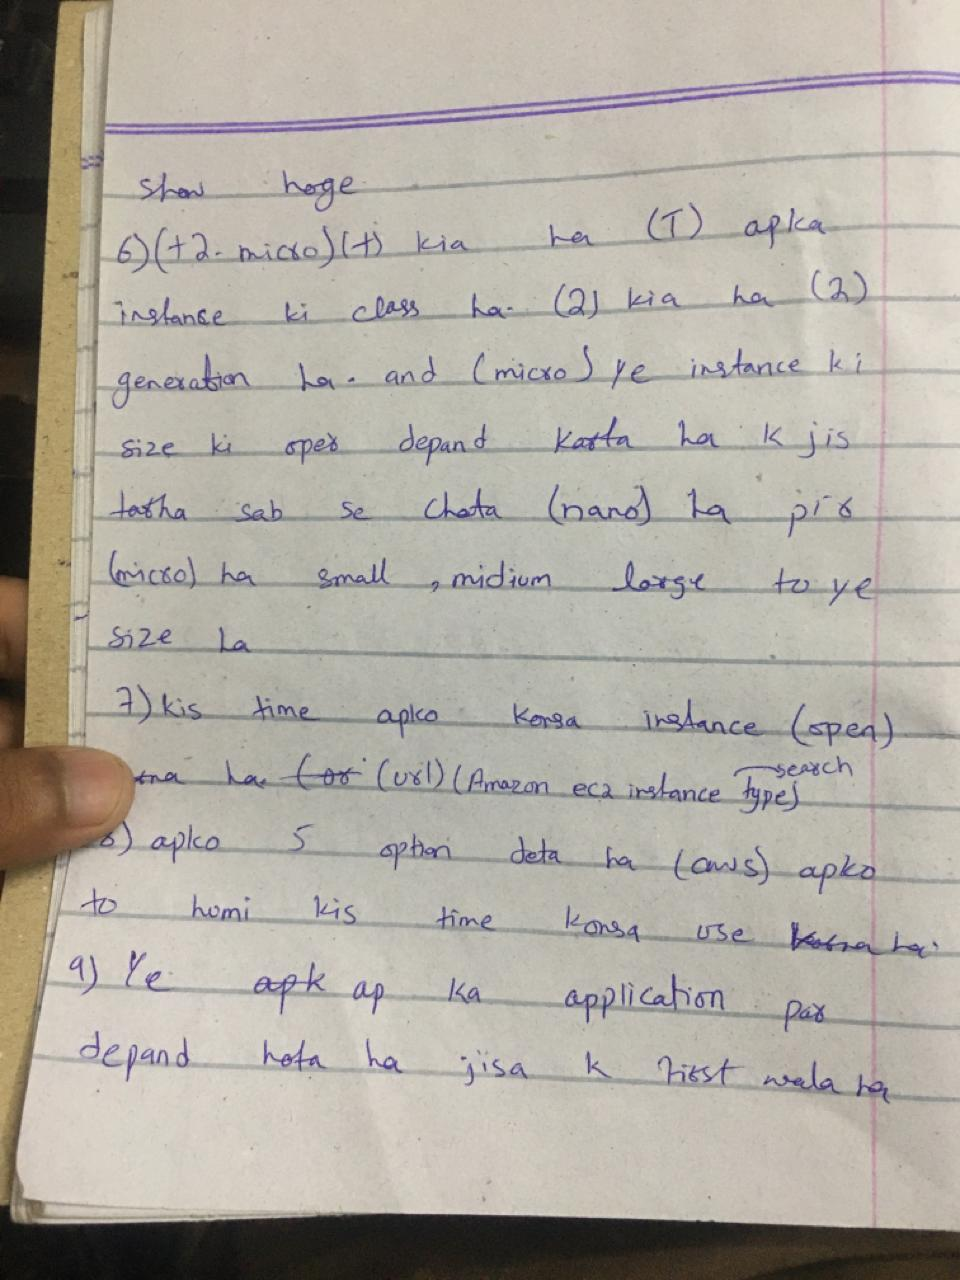 show hoge
6) (t2. micro) (t) kia ha (T) apka
instanse ki class ha. (2) kia ha (2)
generation ha. and (micro) ye instance ki
size ki oper depand karta ha k jis
tarha sab se chota (nano) ha pir
(micro) ha small , midium large to ye
size ha
7) kis time apko konsa instance (open)
ha. (url) (Amazon ec2 instance type) search
8) apko 5 option deta ha (aws) apko
to humi kis time konsa use karna ha.
9) Ye apk ap ka application par
depand hota ha jisa k first wala ha